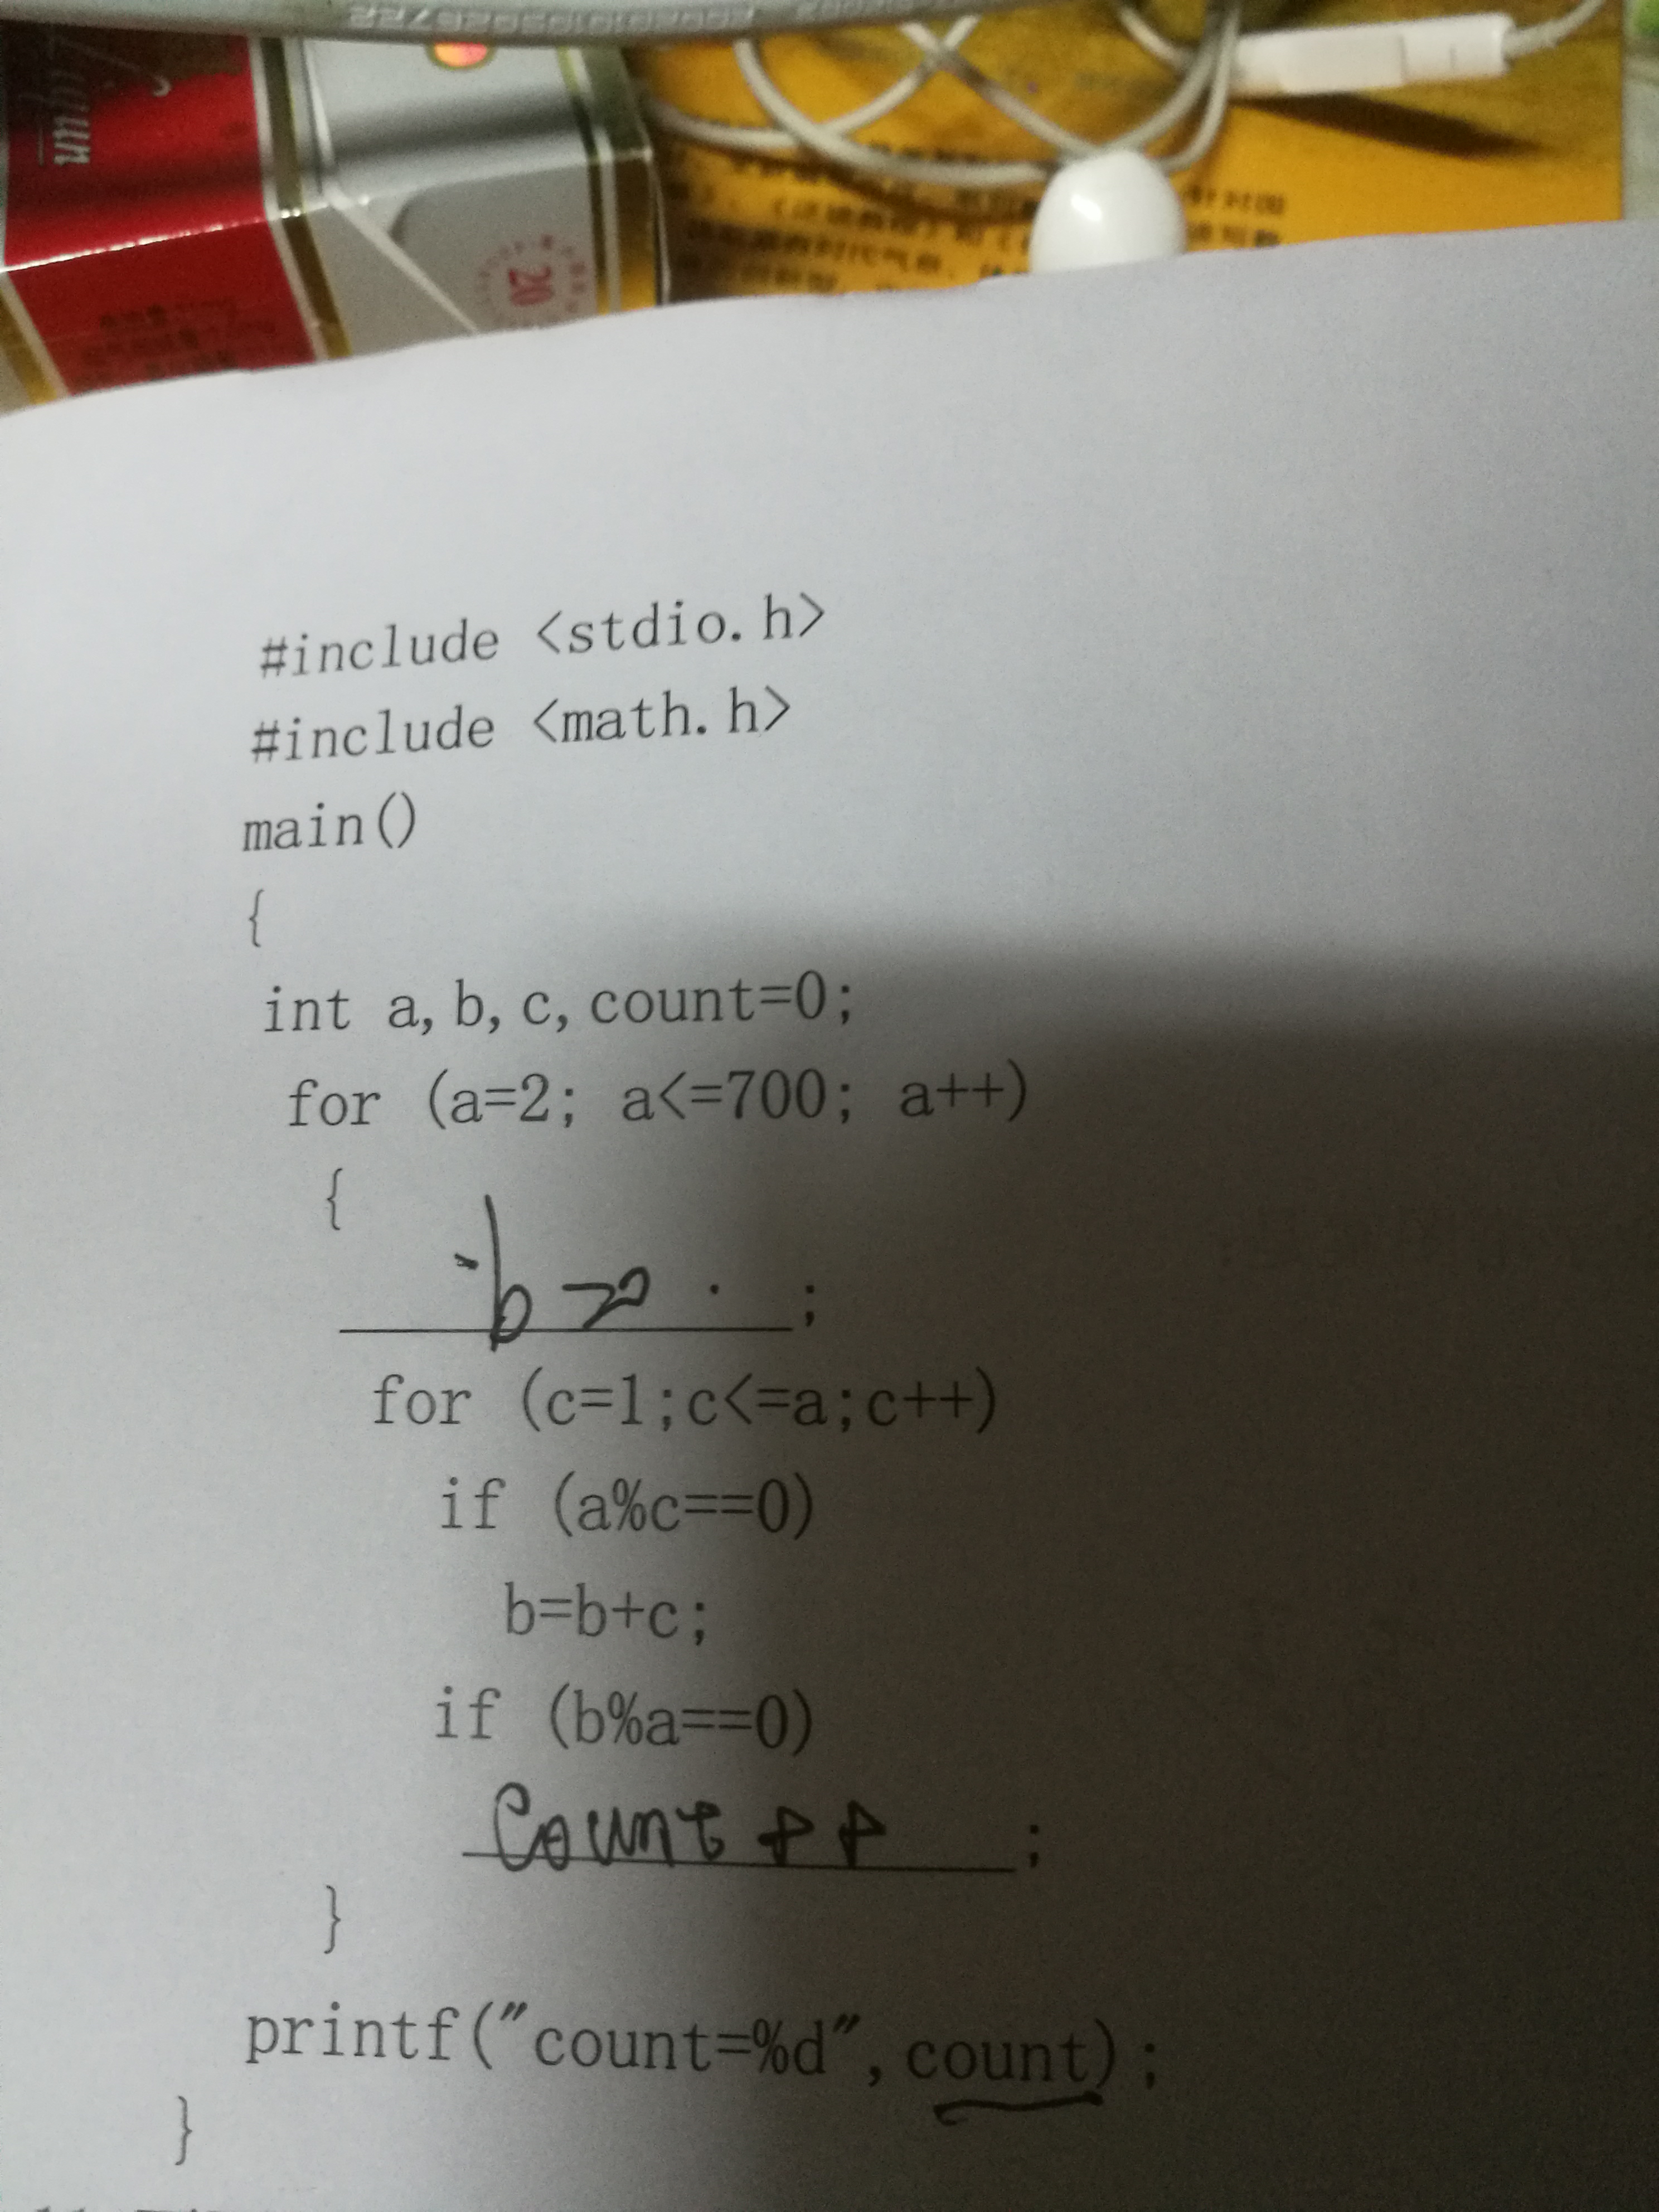 20
#include <stdio.h>
#include <math.h>
main()
{
int a,b,c,count=0;
for (a=2; a<=700; a++)
{
b=0 ;
for (c=1;c<=a;c++)
if (a%c==0)
b=b+c;
if (b%a==0)
Count++ ;
}
printf("count=%d",count);
}